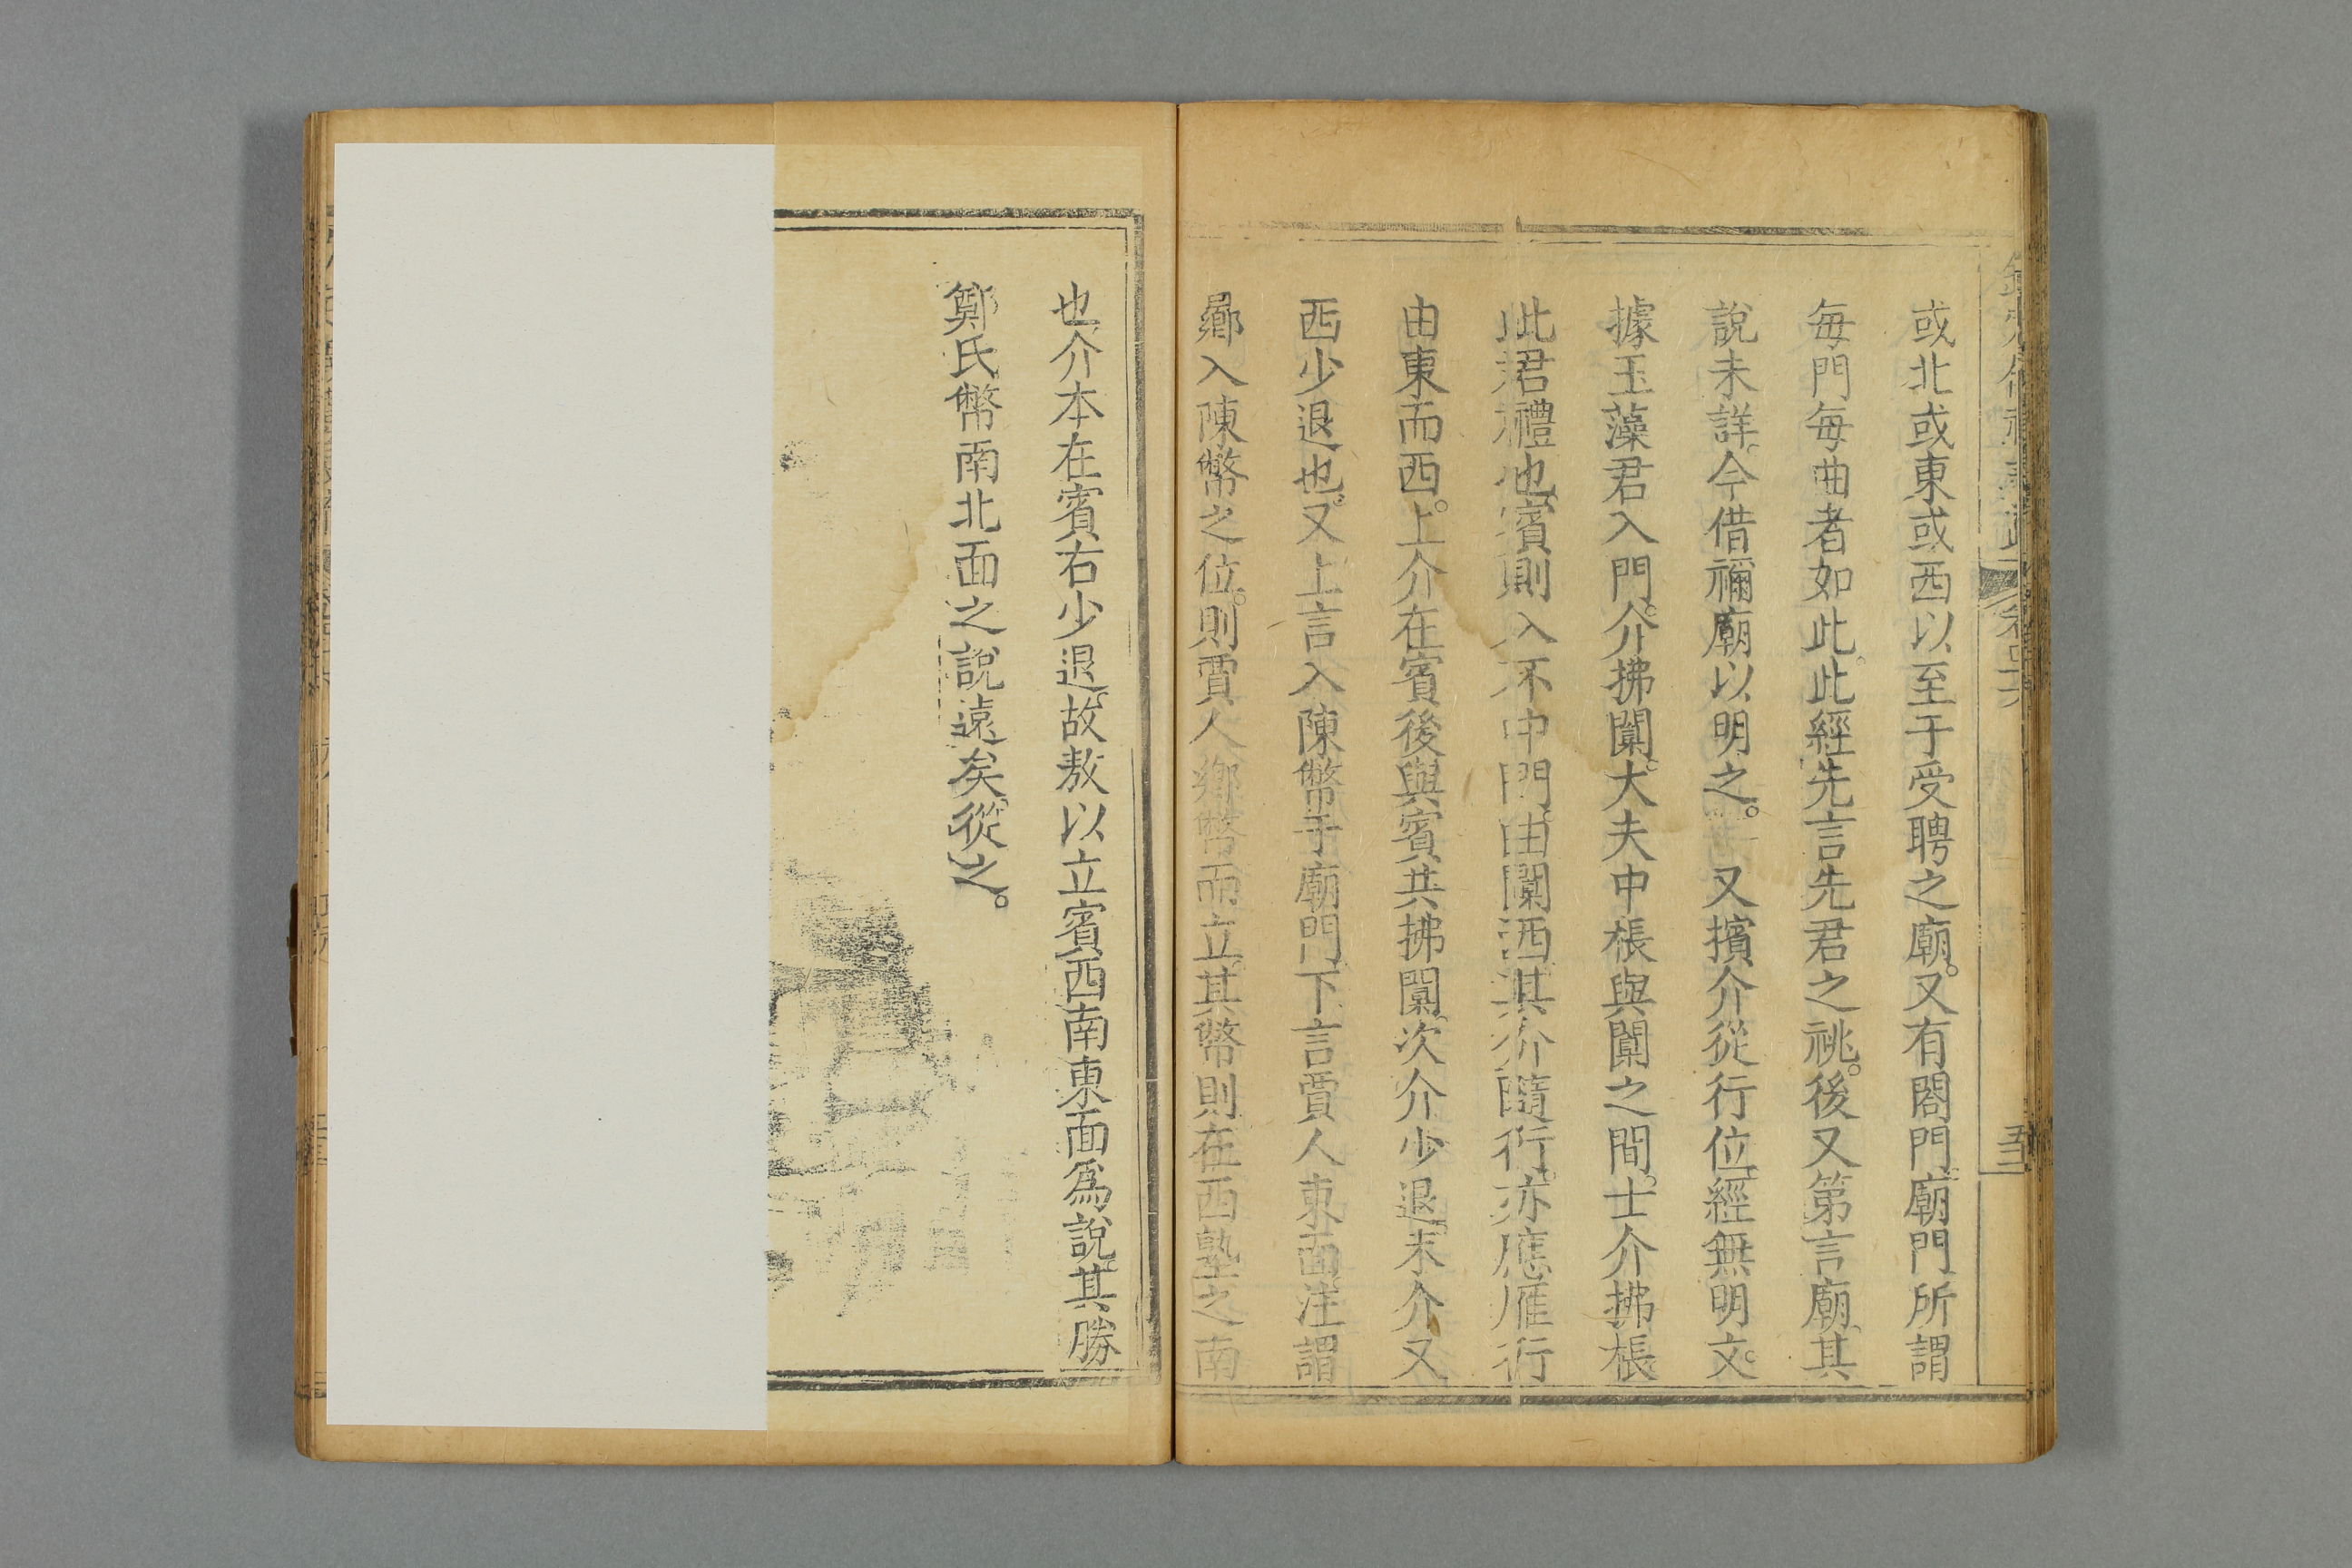 或北或東或西以至于受聘之廟。又有閤門。廟門所謂
每門每曲者如此。此經先言先君之祧。後又第言廟。其
說未詳。今借禰廟以明之。又擯介從行位。經無明文。
據玉藻君入門。介拂闑。大夫中棖與闑之間。士介拂棖。
此君禮也。賓則入不中門。由闑西。其介隨行。亦應雁行
由東而西。上介在賓後與賓共拂闑。次介少退。末介又
西少退也。又上言入陳幣于廟門。下言賈人東面注謂
鄉入陳幣之位。則賈人鄉幣而立。其幣則在西塾之南
也介本在賓右少退。故敖以立賓西南東面爲說。其勝
鄭氏幣南北面之說遠矣。從之。